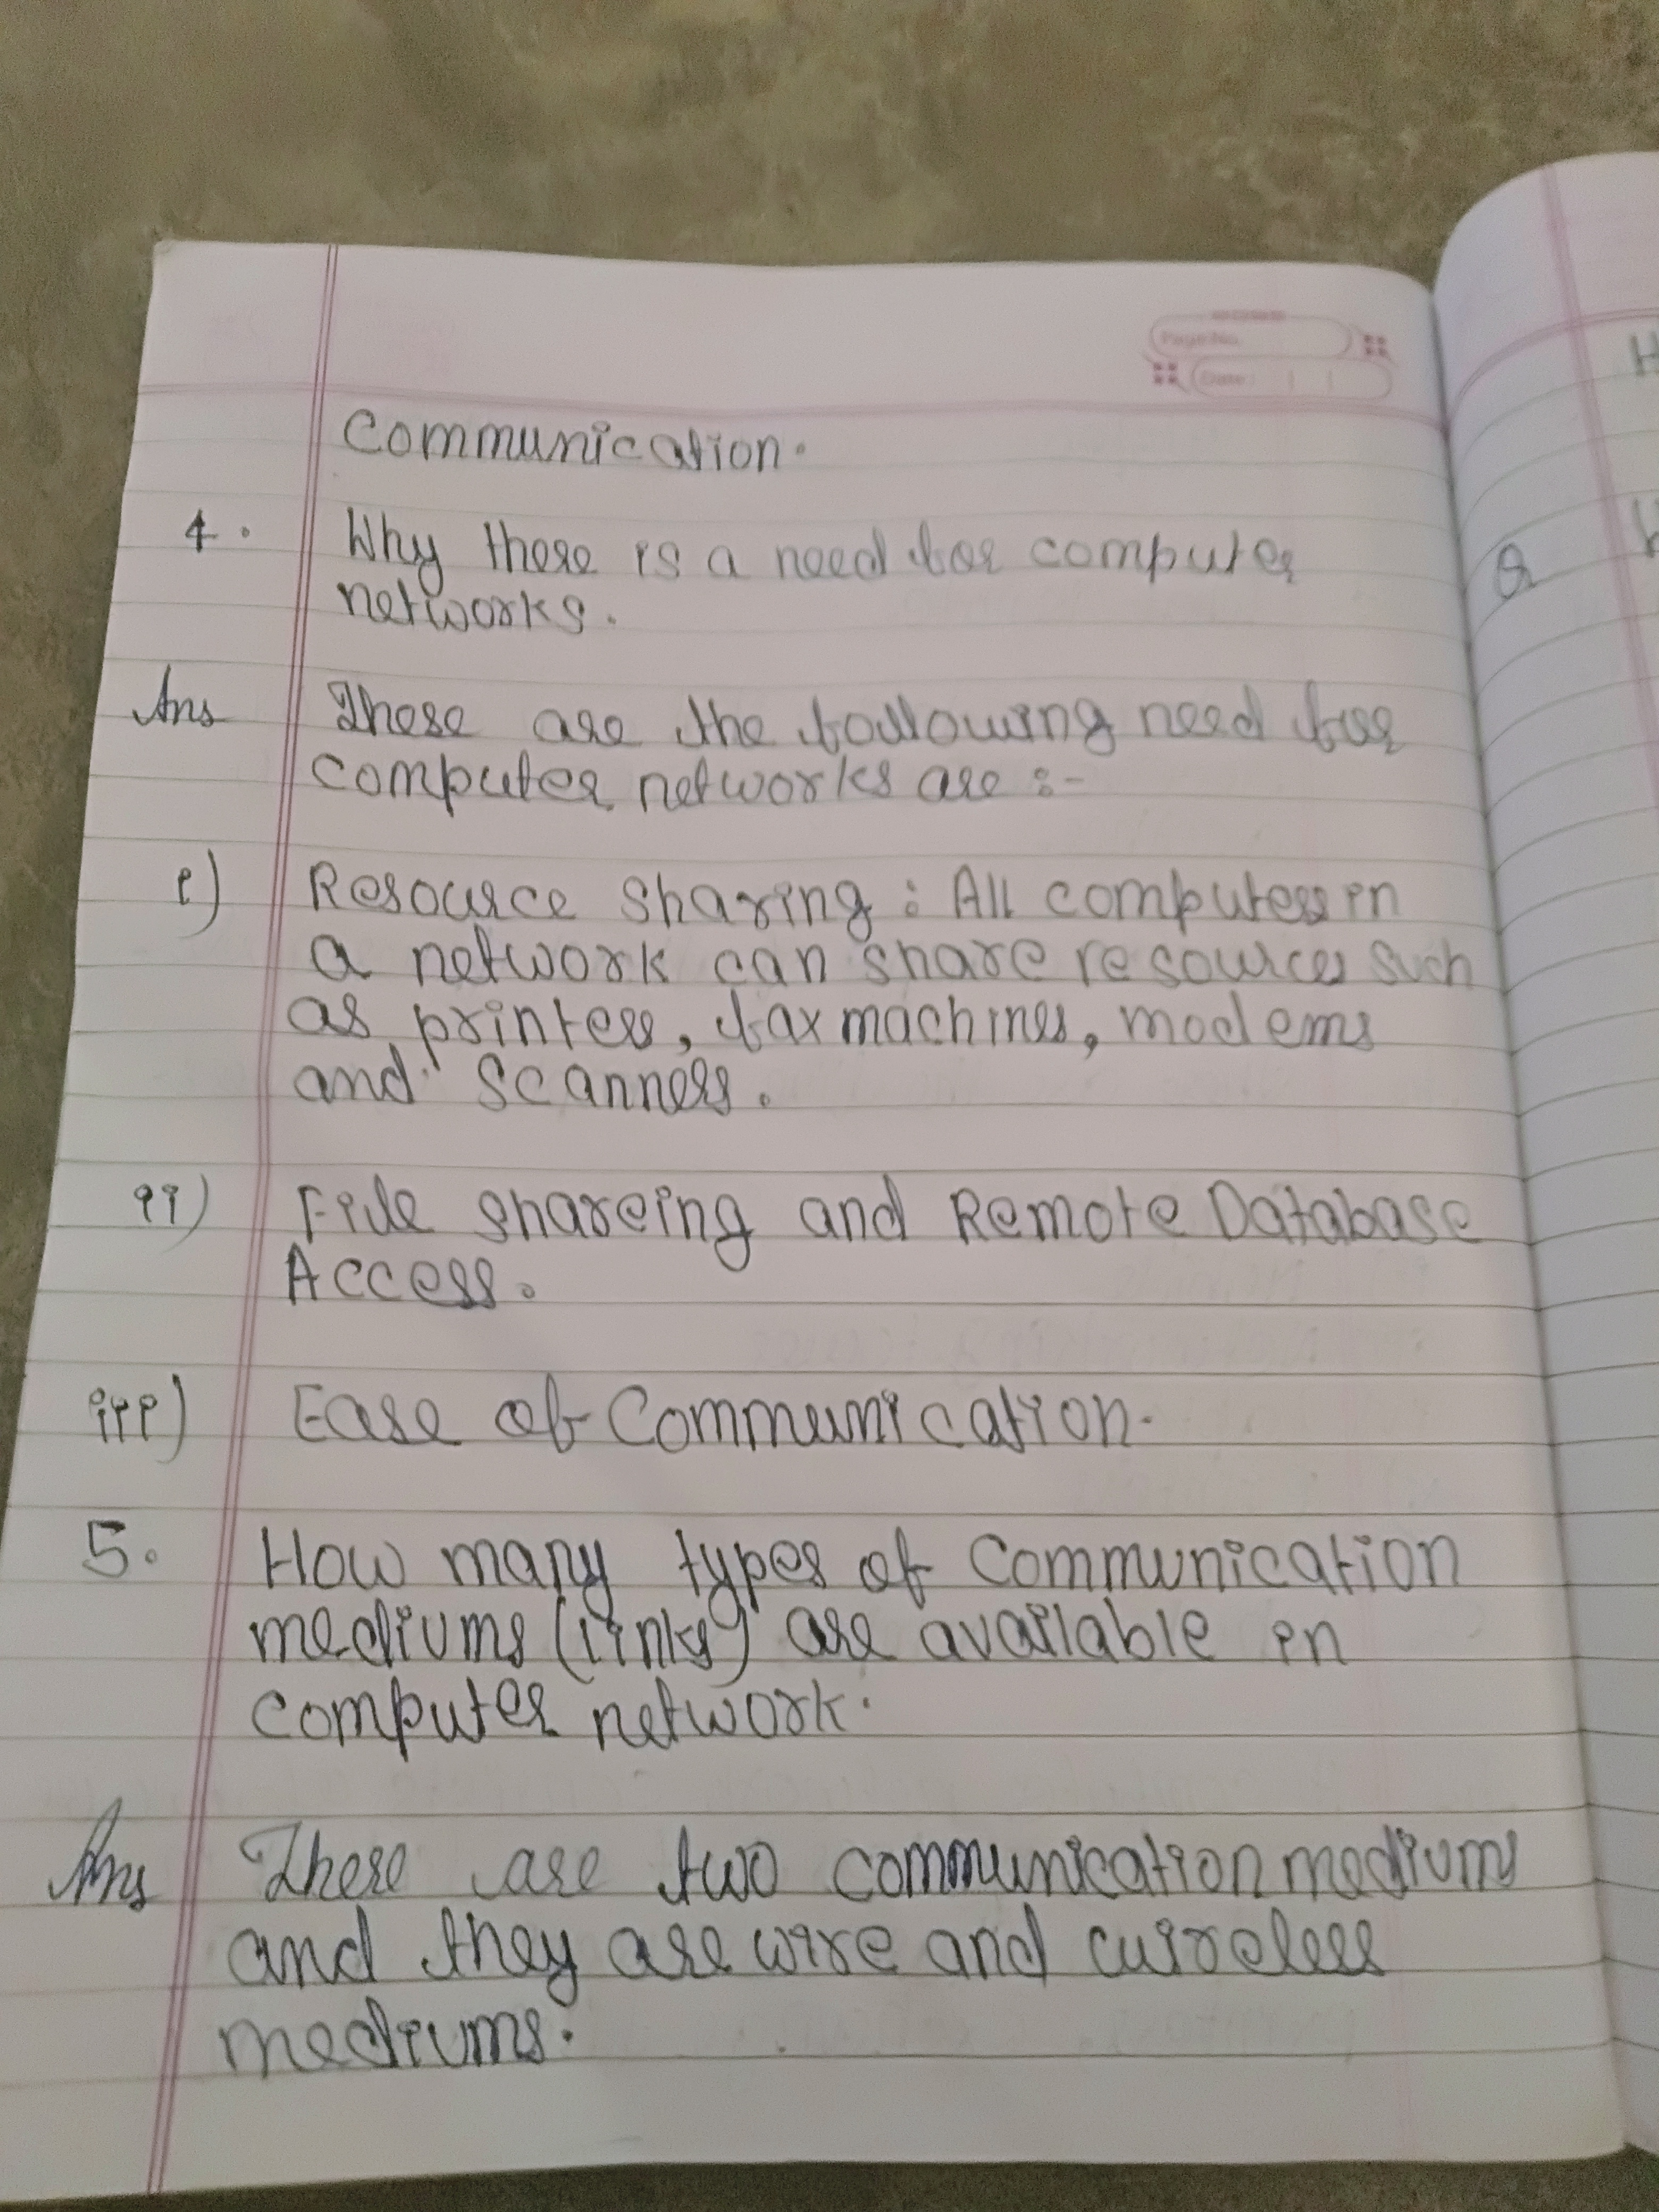 Page No.
Date:
Communication.
4. Why there is a need for computer
networks.
Ans There are the following need for
computer networks are :-
i) Resource sharing : All computers in
a network can share resources such
as printers, fax machines, modems
and scanners.
ii) File shareing and Remote Database
Access.
iii) Ease of Communication.
5. How many types of Communication
mediums (links) are available in
computer network.
Ans There are two communication mediums
and they are wire and wireless
mediums.
H
Q